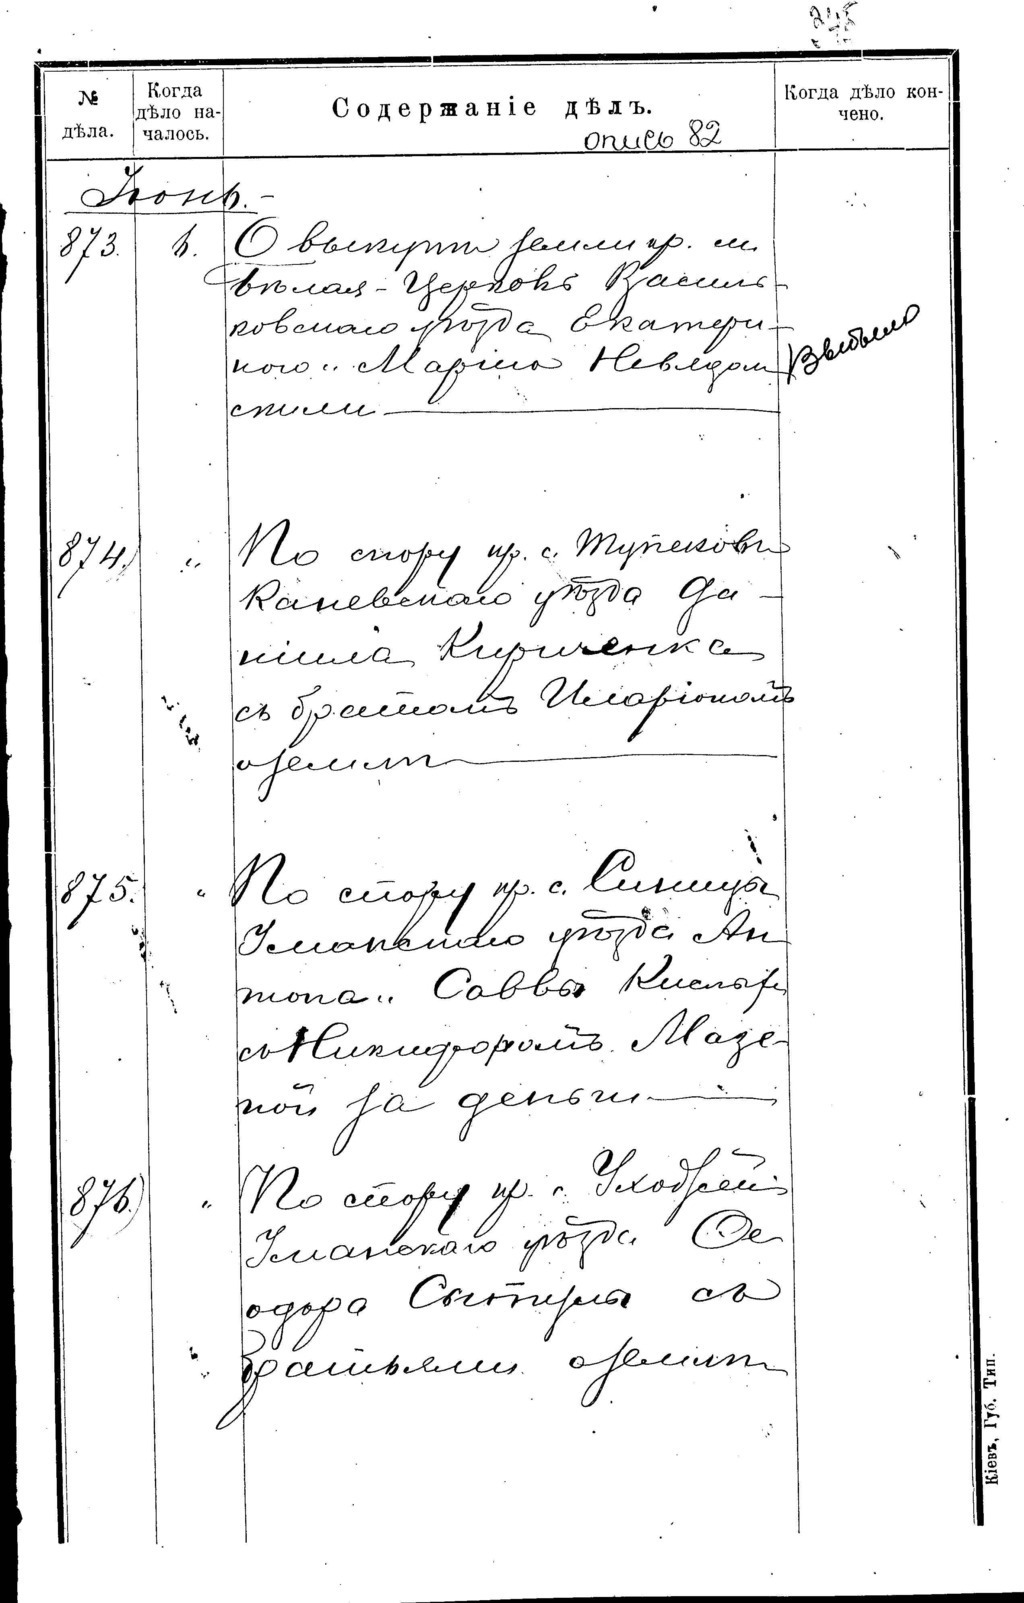 № дѣла.
Когда дѣло на-
чалось.
Содержаніе дѣлъ.
Когда дѣло кон-
чено.
опись 82
Іюнь.-
873. 6. О выкупѣ земли кр. м.
Бѣлая-Церковь Василь-
ковскаго уѣзда Екатери-
ною и Маріею Невядом
скими
Выбыло
874. " По спору кр. с.
Каневскаго уѣзда Да-
ніила Кириченка
съ братомъ Иларіономъ
о землѣ
875. " По спору кр. с. Синицы
Уманскаго уѣзда Ан
тона и Саввы
съ Никифоромъ Мазе-
пой за деньги
876. " По спору кр. с.
Уманскаго уѣзда Ѳе
одора съ
братьями о землѣ
Кіевъ, Губ. Тип.